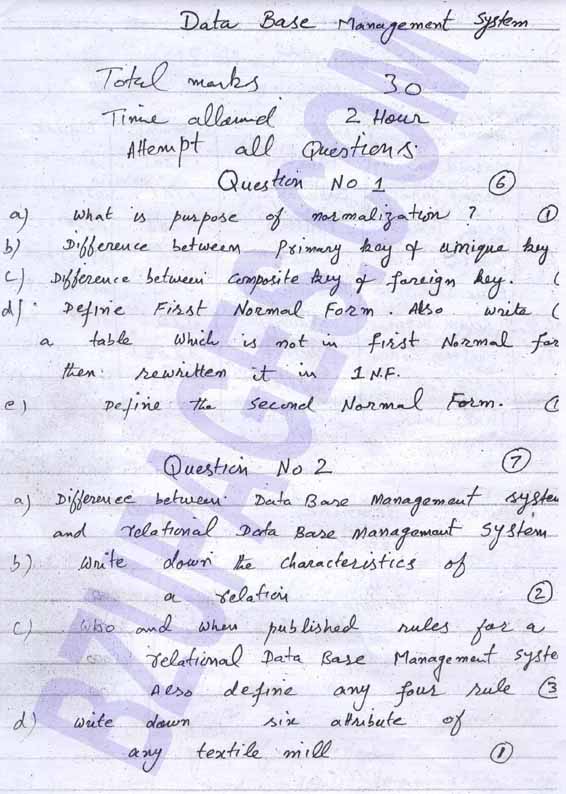 Data Base Management System
Total marks 30
Time allowed 2 Hour
Attempt all Questions.
Question No 1 6
a) What is purpose of normalization? 1
b) Difference between Primary key & unique key
c) Difference between composite key & foreign key. (
d) Define First Normal Form. Also write (
a table which is not in first Normal for
then rewritten it in 1 N.F.
e) Define the second Normal Form. 1
Question No 2 7
a) Difference between Data Base Management system
and relational Data Base Management System
b) Write down the characteristics of
a relation 2
c) Who and when published rules for a
relational Data Base Management Syste
Also define any four rule 3
d) Write down six attribute of
any textile mill 1
BZUPAGES.COM